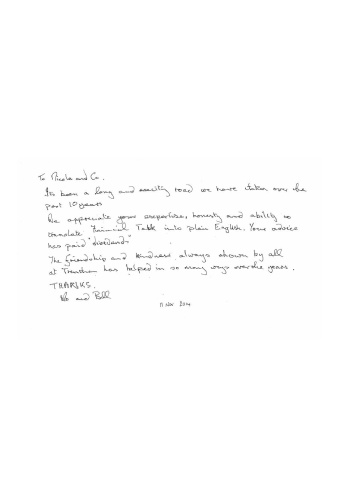 To Nicola and Co.
Its been a long and exciting road we have taken over the
past 10 years
We appreciate your expertise, honesty and ability to
translate "Financial Talk" into plain English. Your advice
has paid "dividends"
The friendship and kindness always shown by all
at has helped in so many ways over the years.
THANKS.
and Bill
11 Nov 2014